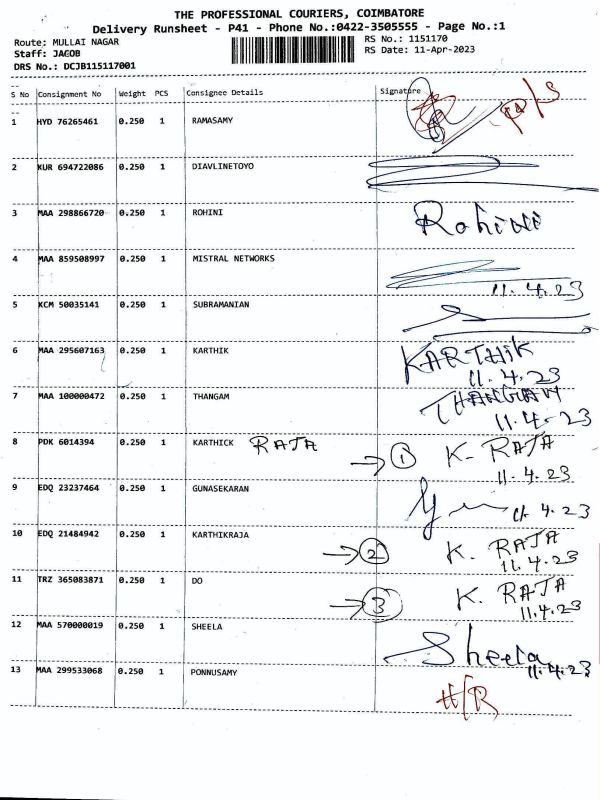 THE PROFESSIONAL COURIERS, COIMBATORE
Delivery Runsheet - P41 - Phone No.:0422-3505555 - Page No.:1
Route: MULLAI NAGAR
Staff: JACOB
DRS No.: DCJB115117001
RS No.: 1151170
RS Date: 11-Apr-2023
S No Consignment No Weight PCS Consignee Details Signature
1 HYD 76265461 0.250 1 RAMASAMY
2 KUR 694722086 0.250 1 DIAVLINETOYO
3 MAA 298866720 0.250 1 ROHINI Rohini
4 MAA 859508997 0.250 1 MISTRAL NETWORKS 11.4.23
5 KCM 50035141 0.250 1 SUBRAMANIAN
6 MAA 295607163 0.250 1 KARTHIK KARTHIK
11.4.23
7 MAA 100000472 0.250 1 THANGAM THANGAM
11.4.23
8 PDK 6014394 0.250 1 KARTHICK RAJA → 1 K. RAJA
11.4.23
9 EDQ 23237464 0.250 1 GUNASEKARAN 11.4.23
10 EDQ 21484942 0.250 1 KARTHIKRAJA → 2 K. RAJA
11.4.23
11 TRZ 365083871 0.250 1 DO → 3 K. RAJA
11.4.23
12 MAA 570000019 0.250 1 SHEELA Sheela
11.4.23
13 MAA 299533068 0.250 1 PONNUSAMY H/R